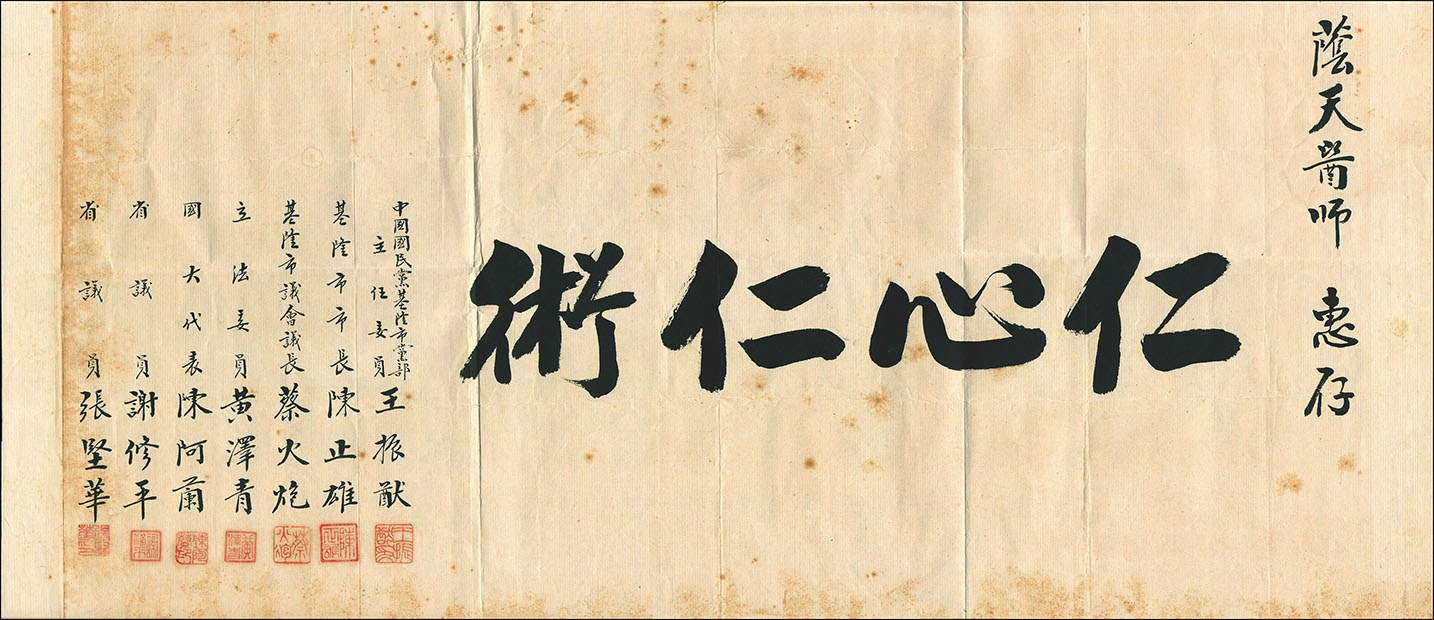 蔭天醫師 惠存
仁心仁術
中國國民黨基隆市黨部
主任委員 王振猷
基隆市市長 陳正雄
基隆市議會議長 蔡火炮
立法委員 黃澤青
國大代表 陳阿蘭
省議員 謝修平
省議員 張堅華